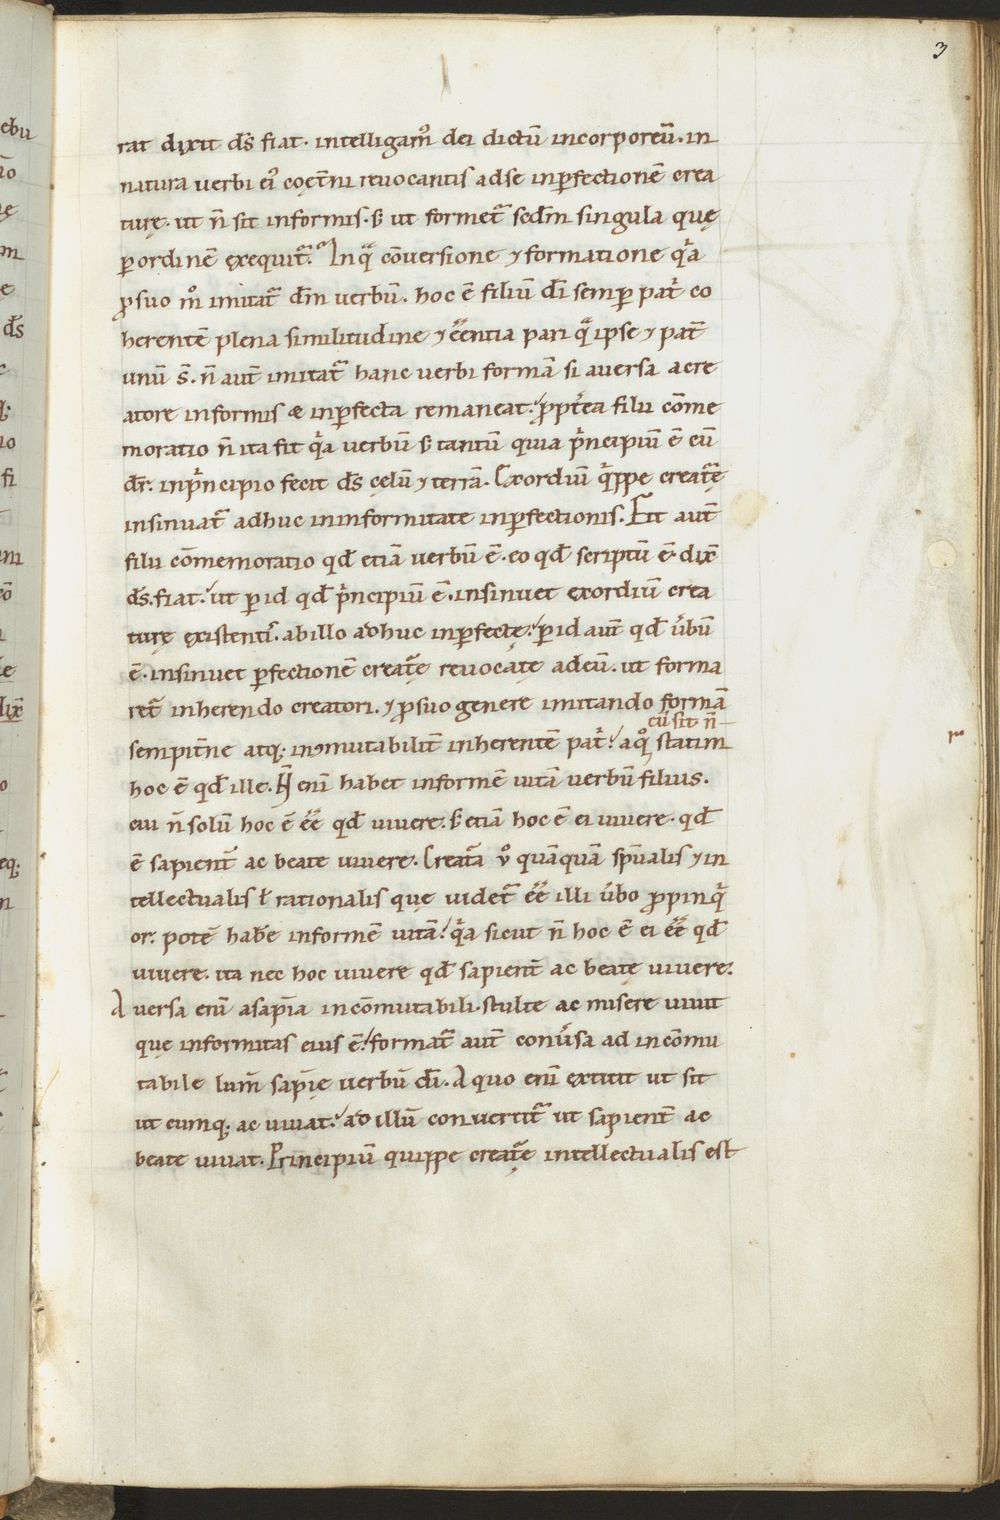 3
rat dixit d̄s fiat. intelligam᷒ dei dictū incorporeū. in
natura verbi ei᷒ coęt̄ni revocantis adse inp̱fectionē crea
turę. ut n̄ sit informis. s; ut formet᷑ sed̄m singula quę
p̱ordinē exequit᷑. In qͣ cōversione ⁊ formatione qͥa
ꝓsuo m᷒ imitat᷑ d̄m verbū. hoc ē filiū d̄i semp̱ pat̄ co
herentē plena similitudine ⁊ ēēntia pari qͣ ipse ⁊ pat̄
unū s̄. n̄ aut̄ imitat᷑ hanc verbi formā si aversa acre
atore informis æ inp̱fecta remaneat. ꝓpt̄ea filii cōme
moratio n̄ ita fit qͥa verbū s; tantū quia pͥncipiū ē cū
d̄r. inpͥncipio fecit d̄s cęlū ⁊ terrā. Exordiū qͥppe creat᷑ę
insinuat᷑ adhuc ininformitate inp̱fectionis. Fit aut̄
filii cōmemoratio qd̄ etiā verbū ē. eo qd̄ scriptū ē. dix̄
d̄s. fiat. ut p̱ id qd̄ pͥncipiū ē. insinuet exordiū crea
turę existenti᷒. abillo adhuc inp̱fectę. p̱ id aut̄ qd̄ ūbū
ē. insinuet p̱fectionē creat᷑ę revocatę adeū. ut forma
ret᷑ inherendo creatori. ⁊ ꝓsuo genere imitando formā
cū sit n̄
sempit̄ne atq; incōmutabilit̄ inherentē pat̄. aq᷒ statim
hoc ē qd̄ ille. N̄ enī habet informē vitā verbū filius.
cui n̄ solū hoc ē ēē qd̄ vivere. s; etiā hoc ē ei vivere. qd̄
ē sapient̄ ac beate vivere. Creat᷑a v᷒ quāquā sp̄ualis ⁊ in
tellectualis ł rationalis que videt᷑ ēē illi ūbo ꝓpinqͥ
or. potē hab̄e informē vitā. qͥa sicut n̄ hoc ē ei ēē qd̄
vivere. ita nec hoc vivere qd̄ sapient̄ ac beate vivere.
Aversa enī asapīa incōmutabili. stulte ac misere vivit
que informitas eius ē. format᷑ aut̄ conūsa ad incōmu
tabile lum̄ sapīę verbū d̄i. A quo enī extitit ut sit
ut cumq; ac vivat. ad illū convertit᷑ ut sapient̄ ac
beate vivat. Principiū quippe creat᷑ę intellectualis est